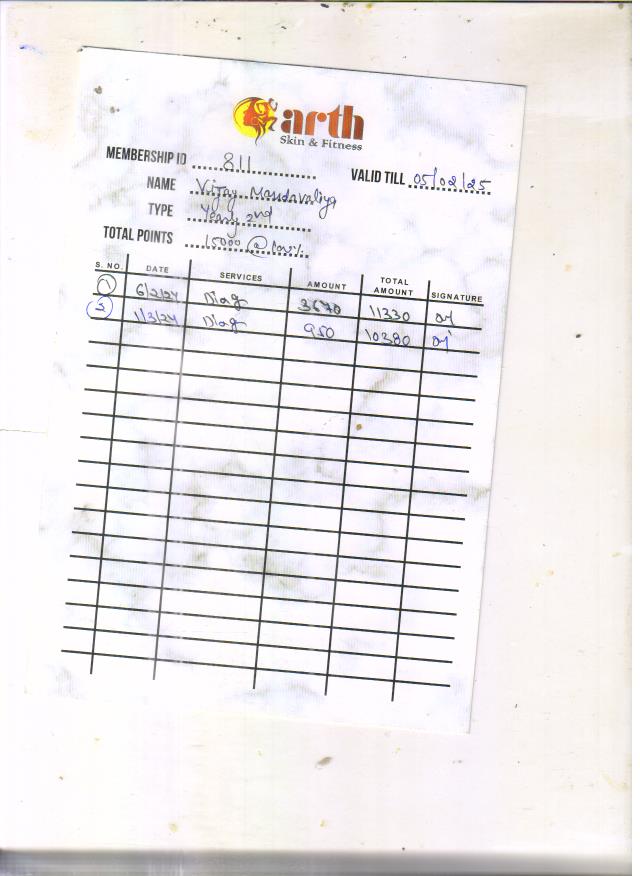 arth
Skin & Fitness
MEMBERSHIP ID 811
VALID TILL 05/02/25
NAME Vijay Mandavaliya
TYPE Yearly 2nd
TOTAL POINTS 15000 @
S. NO. DATE SERVICES AMOUNT TOTAL AMOUNT SIGNATURE
1 6/2/24 Diag 3670 11330
2 1/3/24 Diag 950 10380